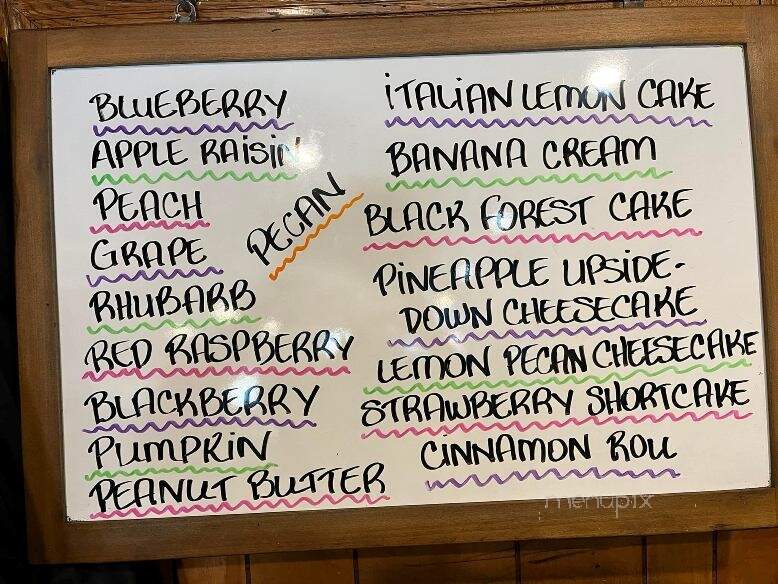 BLUEBERRY
APPLE RAISIN
PEACH
GRAPE
RHUBARB
RED RASPBERRY
BLACKBERRY
PUMPKIN
PEANUT BUTTER
PECAN
ITALIAN LEMON CAKE
BANANA CREAM
BLACK FOREST CAKE
PINEAPPLE UPSIDE-
DOWN CHEESECAKE
LEMON PECAN CHEESECAKE
STRAWBERRY SHORTCAKE
CINNAMON ROLL
menupix